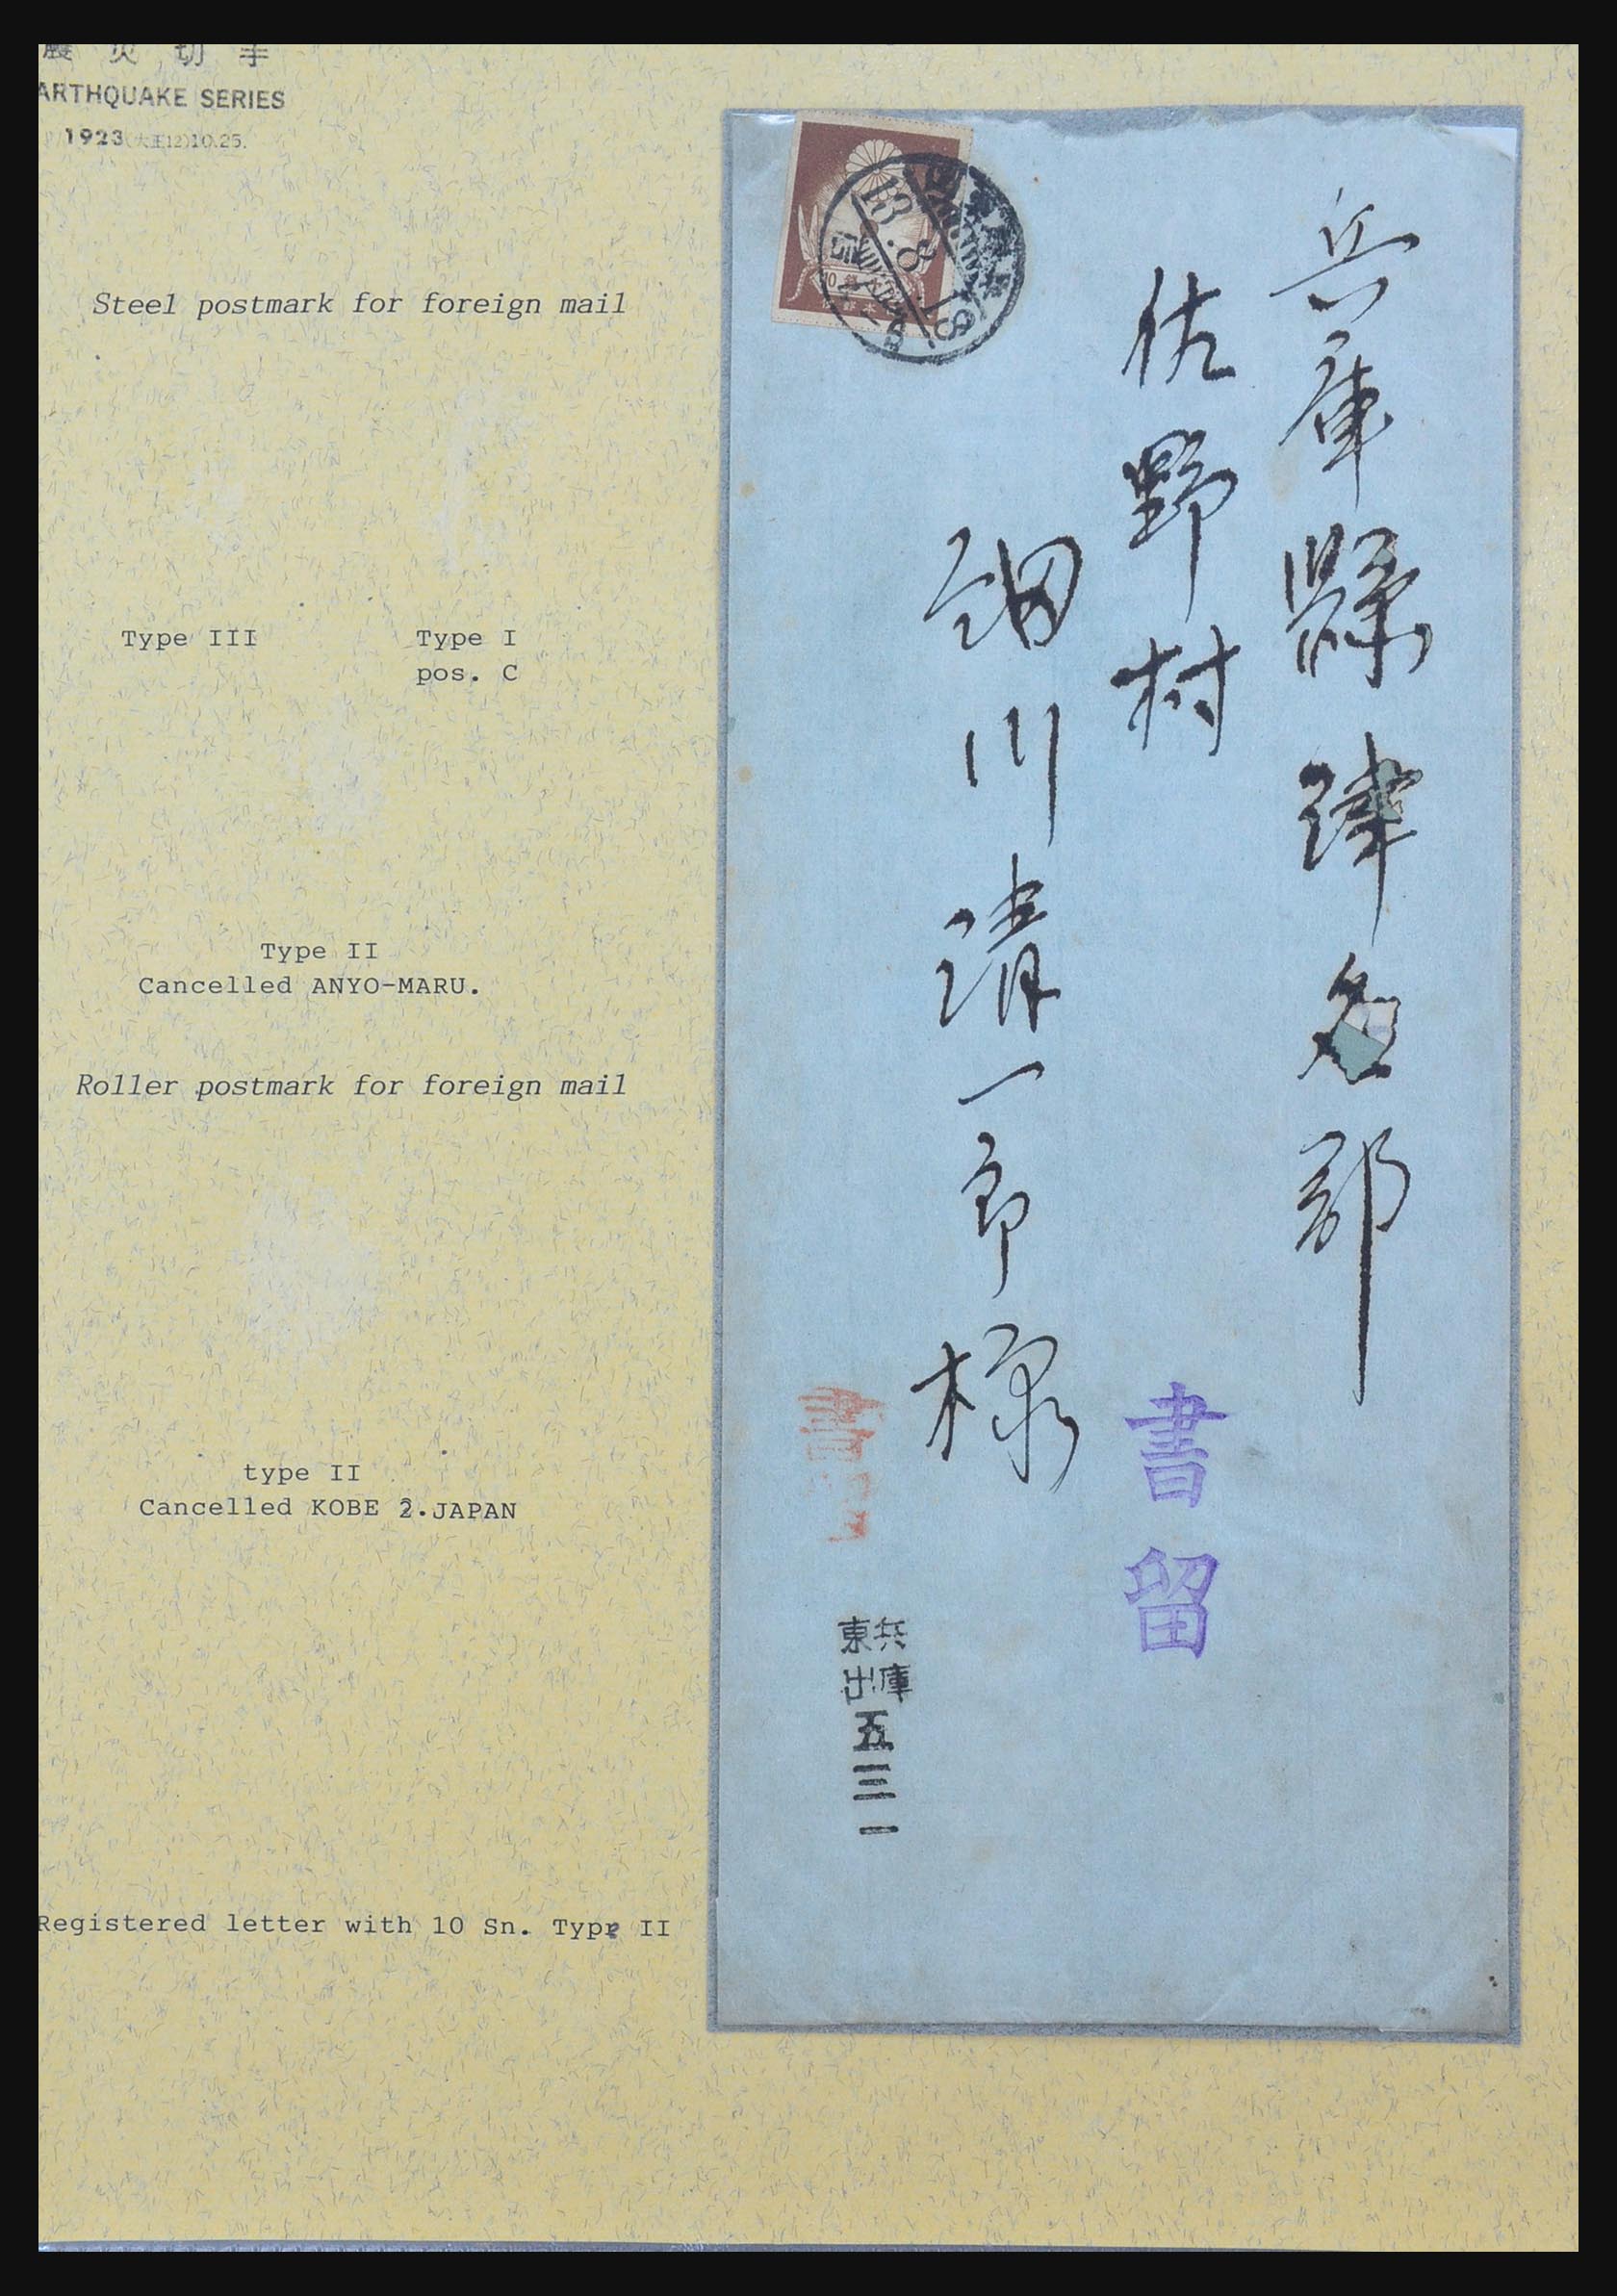 震災切手
ARTHQUAKE SERIES
1923(大正12)10.25.
Steel postmark for foreign mail
Type III
Type I
pos. C
Type II
Cancelled ANYO-MARU.
Roller postmark for foreign mail
type II
Cancelled KOBE 2.JAPAN
Registered letter with 10 Sn. Type II
13.8.18
兵庫縣津名郡
佐野村
細川清一郎様
書留
書留
兵庫
東出
五三一